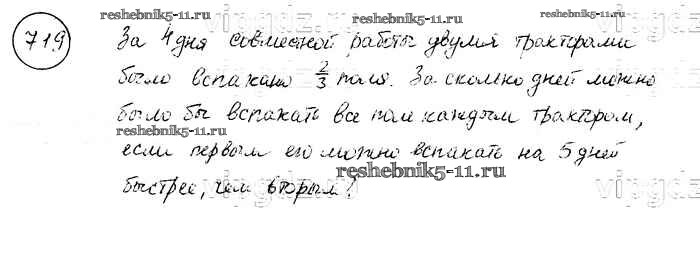 reshebnik5-11.ru reshebnik5-11.ru
719 За 4 дня совместной работы двумя тракторами
было вспахано 2/3 поля. За сколько дней можно
было бы вспахать все поле каждым трактором,
reshebnik5-11.ru
если первым его можно вспахать на 5 дней
reshebnik5-11.ru
быстрее, чем вторым?
reshebnik5-11.ru